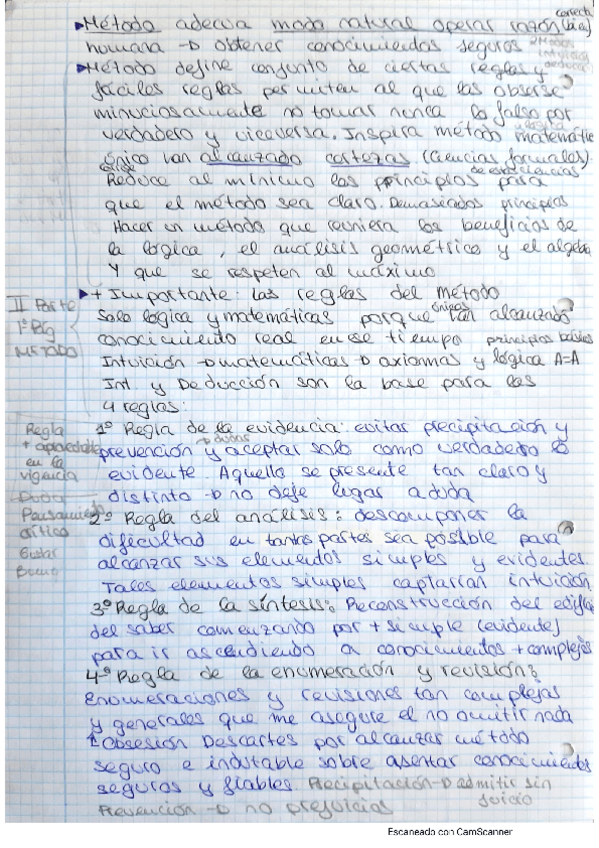 ▸Método adecua modo natural operar razón correcta
humana → obtener conocimientos seguros 2 Modos
▸Método define conjunto de ciertas reglas y
fáciles reglas permiten al que las observe
minuciosamente no tomar nunca lo falso por
verdadero y viceversa. Inspira método matemática
único van alcanzado certezas (ciencias formales).
Reduce al mínimo los principios para
de estas ciencias
que el método sea claro. Demasiados principios
Hacer un método que reuniera los beneficios de
la lógica, el análisis geométrico y el algebra
Y que se respeten al máximo
▸+ Importante: las reglas del método
Solo lógica y matemáticas porque únicas han alcanzado
conocimiento real en ese tiempo principios básicos
Intuición → matemáticas → axiomas y lógica A=A
Int y Deducción son la base para las
4 reglas:
II Parte
1º Pág
Método
1º Regla de la evidencia: evitar precipitación y
prevención y aceptar solo como verdadero lo
→ dudas
evidente. Aquello se presente tan claro y
distinto → no deje lugar a duda
2º Regla del análisis: descomponer la
dificultad en tantas partes sea posible para
alcanzar sus elementos simples y evidentes.
Tales elementos simples captarían intuición
3º Regla de la síntesis: Reconstrucción del edificio
del saber comenzando por + simple (evidente)
para ir ascendiendo a conocimientos + complejos
4º Regla de la enumeración y revisión:
Enumeraciones y revisiones tan complejas
y generales que me asegure el no omitir nada
↑ Obsesión Descartes por alcanzar método
seguro e indutable sobre asentar conocimientos
seguros y fiables. Precipitación → admitir sin
juicio
Prevención → no prejuicios
Regla
en la
vigencia
Dudar
Pensamiento
crítico
Escaneado con CamScanner